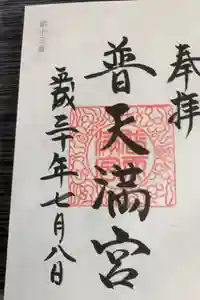 奉拝
普天満宮
平成三十年七月八日
第十三番